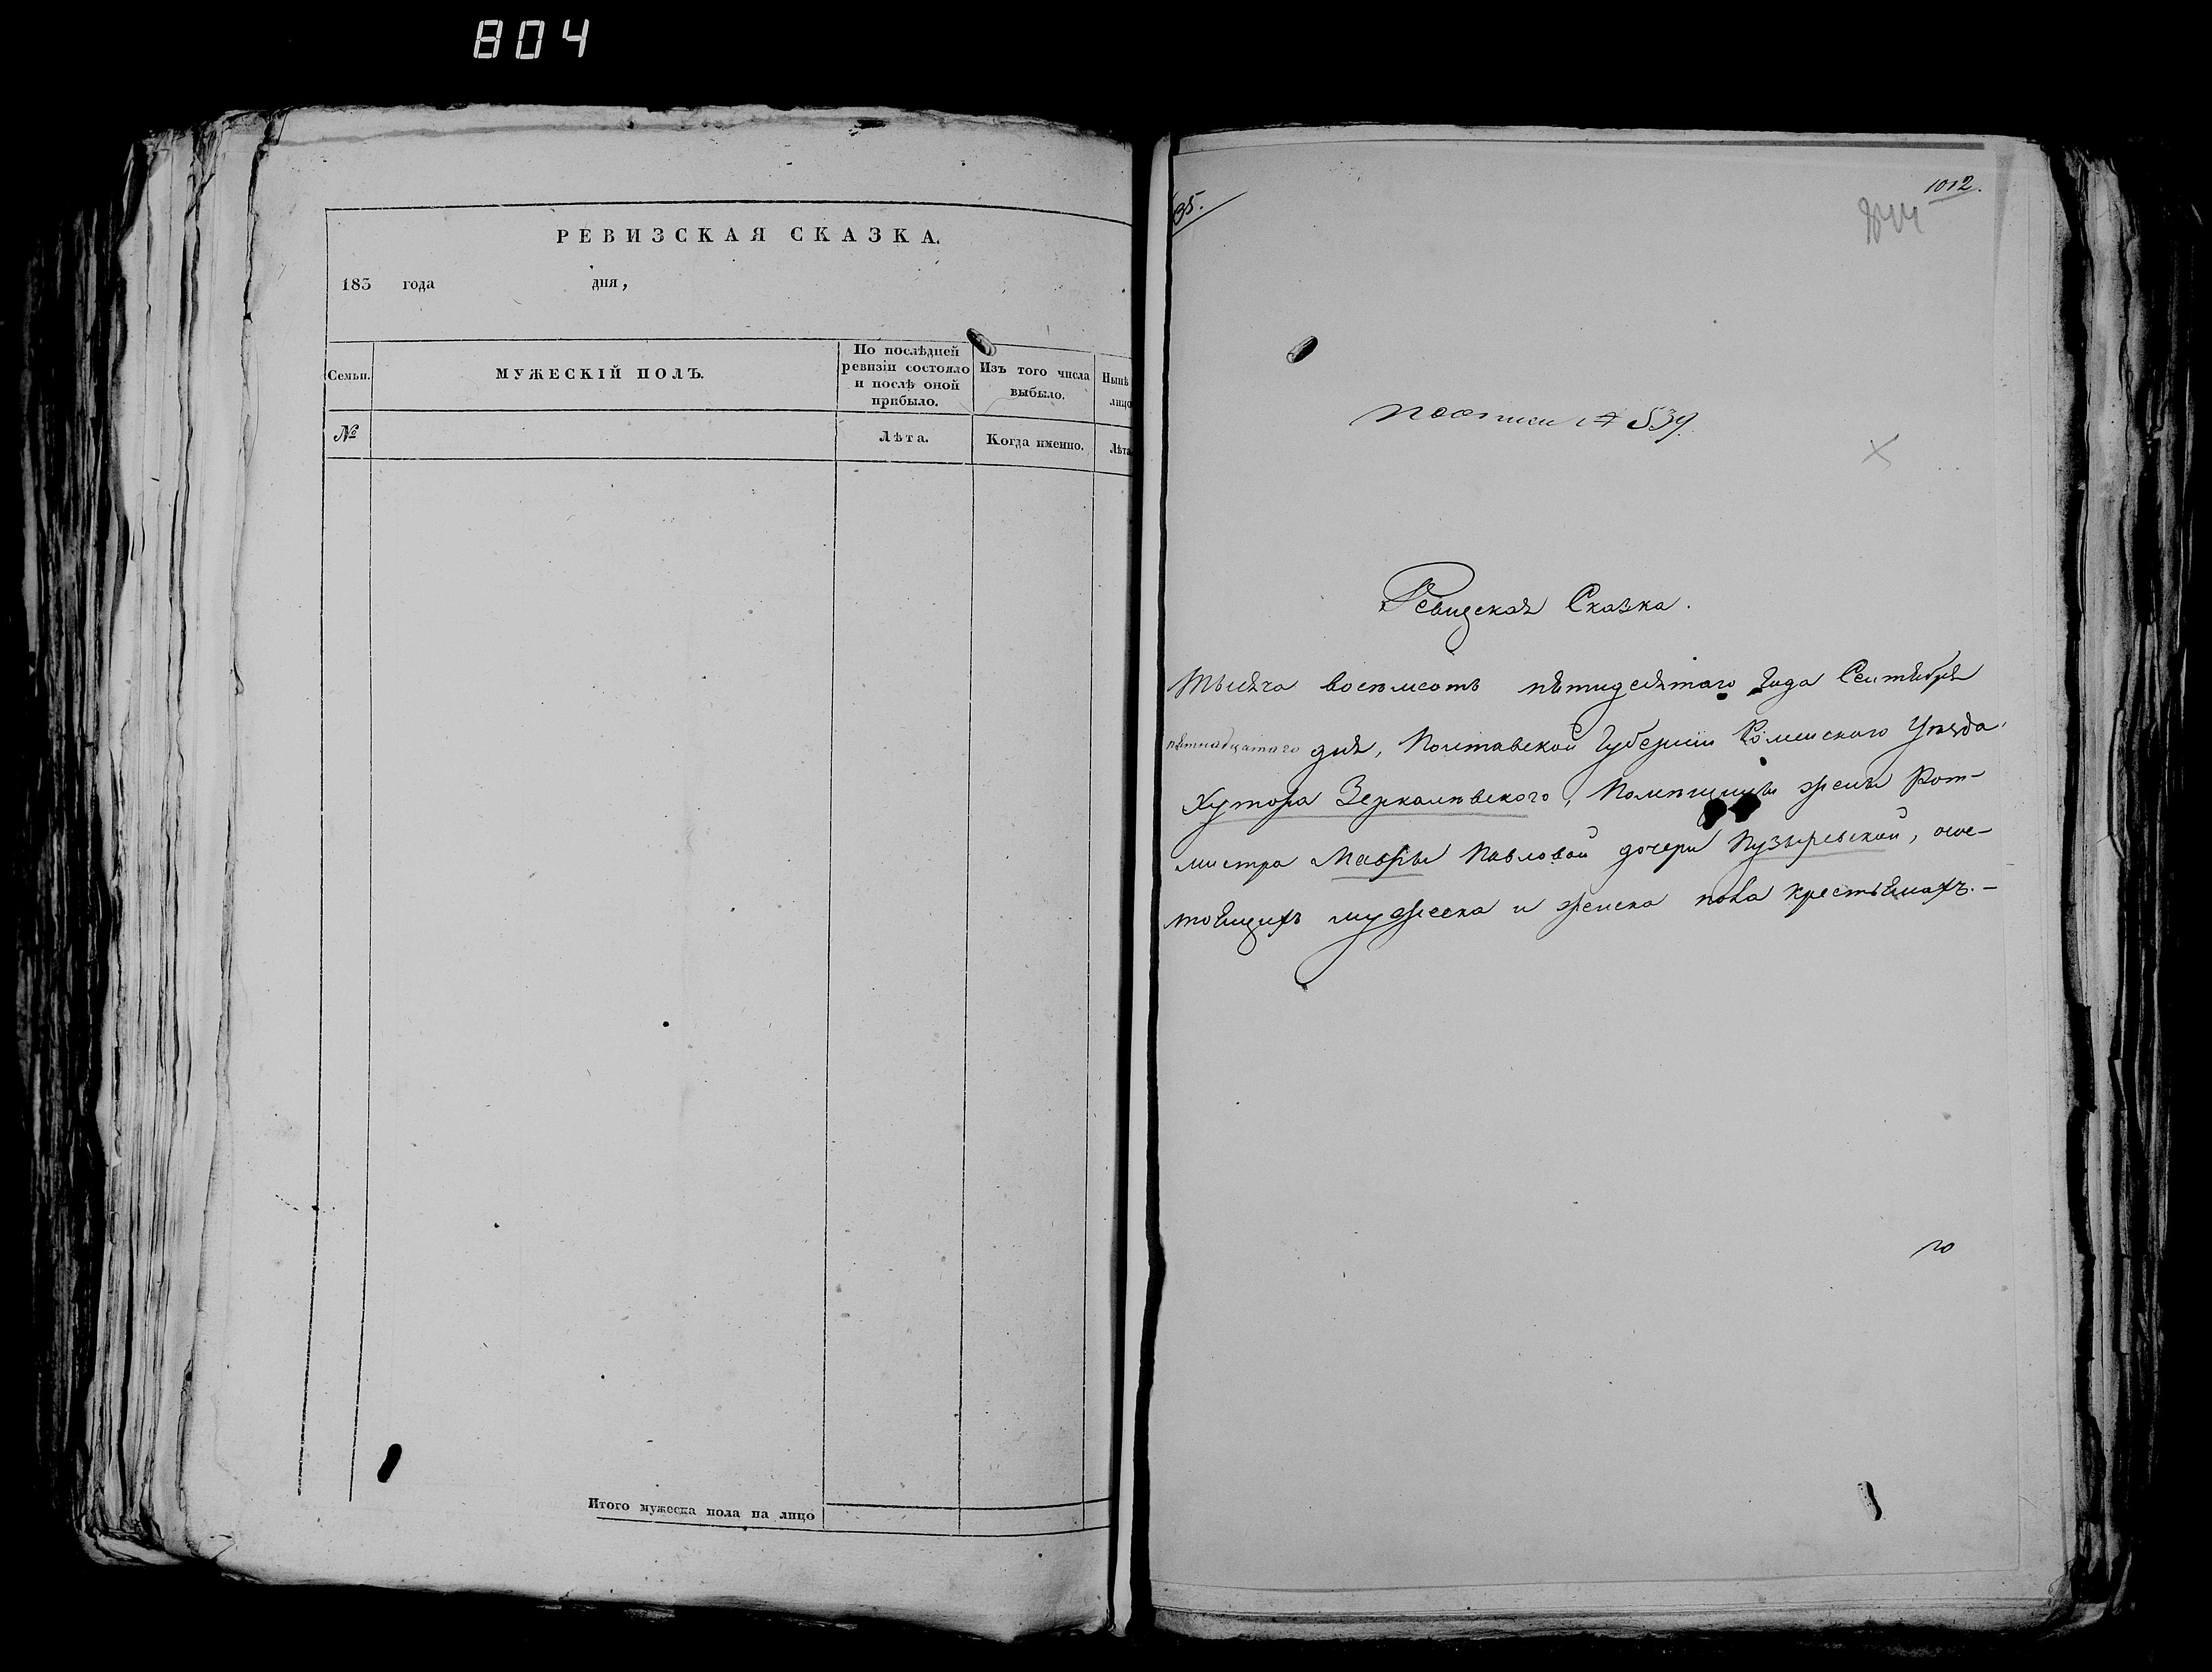 804
РЕВИЗСКАЯ СКАЗКА.
185 года дня,
Семьи.
МУЖЕСКІЙ ПОЛЪ.
По послѣдней
ревизіи состояло
и послѣ оной
прибыло.
Изъ того числа
выбыло.
Нынѣ
лицо
№
Лѣта.
Когда именно.
Лѣта
Итого мужеска пола на лицо
35.
1012.
№ 539
Ревизская Сказка.
Тысяча восемьсотъ пятидесятаго года Сентября
пятнадцатаго дня, Полтавской Губерніи Роменского Уѣзда
Хутора Зеркалѣвского, Помѣщицы жены Рот-
мистра Мавры Павловой дочери Пузыревской, осо-
тоящихъ мужеска и женска пола крестьянахъ.-